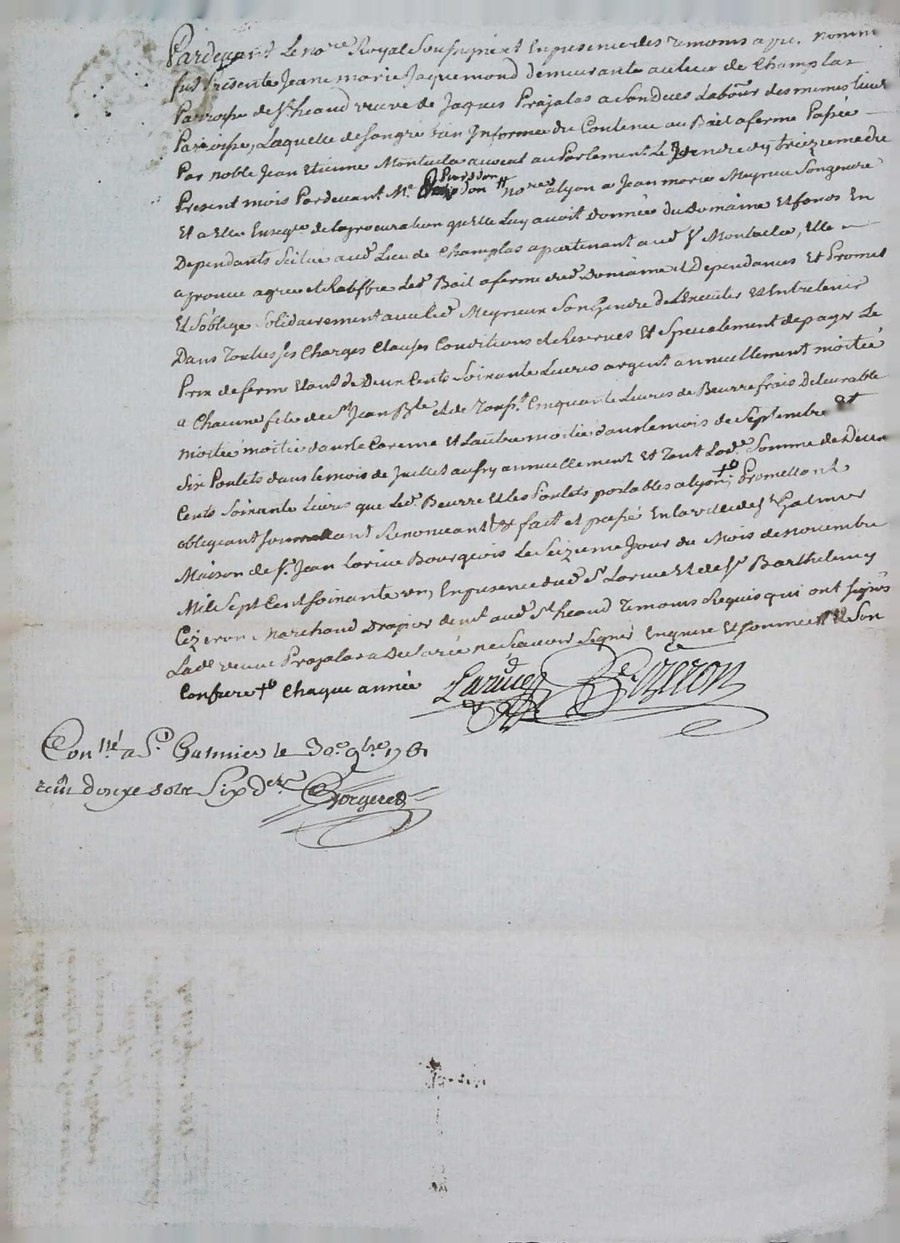 Pardevant Le no.re Royal Soussigné et En presence des temoins apr. nommés
fut présente Jeanne marie Jaquemond demeurante au lieu de Champlas
Parroisse de St. heand veuve de Jaques Prajalas a son deces Labour. des memes lieu et
Parroisse, Laquelle de son gré bien Informée du Contenu au Bail a ferme Passé
Par noble Jean Etienne Montucla avocat au Parlement Le treizieme du
Present mois Pardevant M.e no.res a lyon a Jean marie Meyrieu Son gendre
Et a Elle En de la procuration qu'elle Luy avoit donnée du domaine et fonds En
Dependants Scitué aud. Lieu de Champlas apartenant aud. Sr. Montucla, Elle
aprouve agrée et Led. Bail a ferme dud. domaine et Dépendances Et Promet
Et s'oblige Solidairement avec led. Meyrieux Son Gendre de L'executer Et Entretenir
Dans Toutes ses Charges Clauses Conditions et Reserves Et Specialement de payer Le
Prix de ferme Etant de Deux Cents Soixante Livres argent annuellement moitié
a Chacune fête de St. Jean Bte. et de Cinquante Livres de Beurre frais Delivrable
moitié dans le Careme Et Lautre moitié dans le mois de Septembre Et
Six Poulets dans le mois de Juillet aussy annuellement Et Tant Lad. Somme de Deux
Cents Soixante Livres que Led. Beurre Et les Poulets portables a lyon, Promettant
obligeant soumettant Renonceant & fait et passé En la ville de St Galmier
Maison de Sr. Jean Larüe Bourgeois Le Seizieme Jour du Mois de novembre
Mil Sept Cent soixante un, En presence dud. Sr. Larue Et de Sr. Barthelemy
Cizeron Marchand Drapier dem.t aud. St. heand Temoins Requis qui ont signés
Lad. veuve Prajalas a declaré ne Scavoir Signer Enquise Et sommée Et Son
Confrere + Chaque année
Larüe Cizeron
Con.llé a St. Galmier le 30e 9bre 1761
reçu douze sols Six d.ers